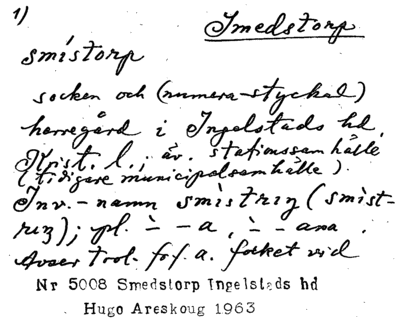 1)
Smedstorp
smistorp
socken och (numera styckad)
herregård i Ingelstads hd,
Krist. l.; äv. stationssamhälle
(tidigare municipalsamhälle).
Inv.-namn smistriŋ (smist-
riŋ); pl. ̀ - - a, ̀ - - ana.
Avser trol. fsf. a. folket vid
Nr 5008 Smedstorp Ingelstads hd
Hugo Areskoug 1963